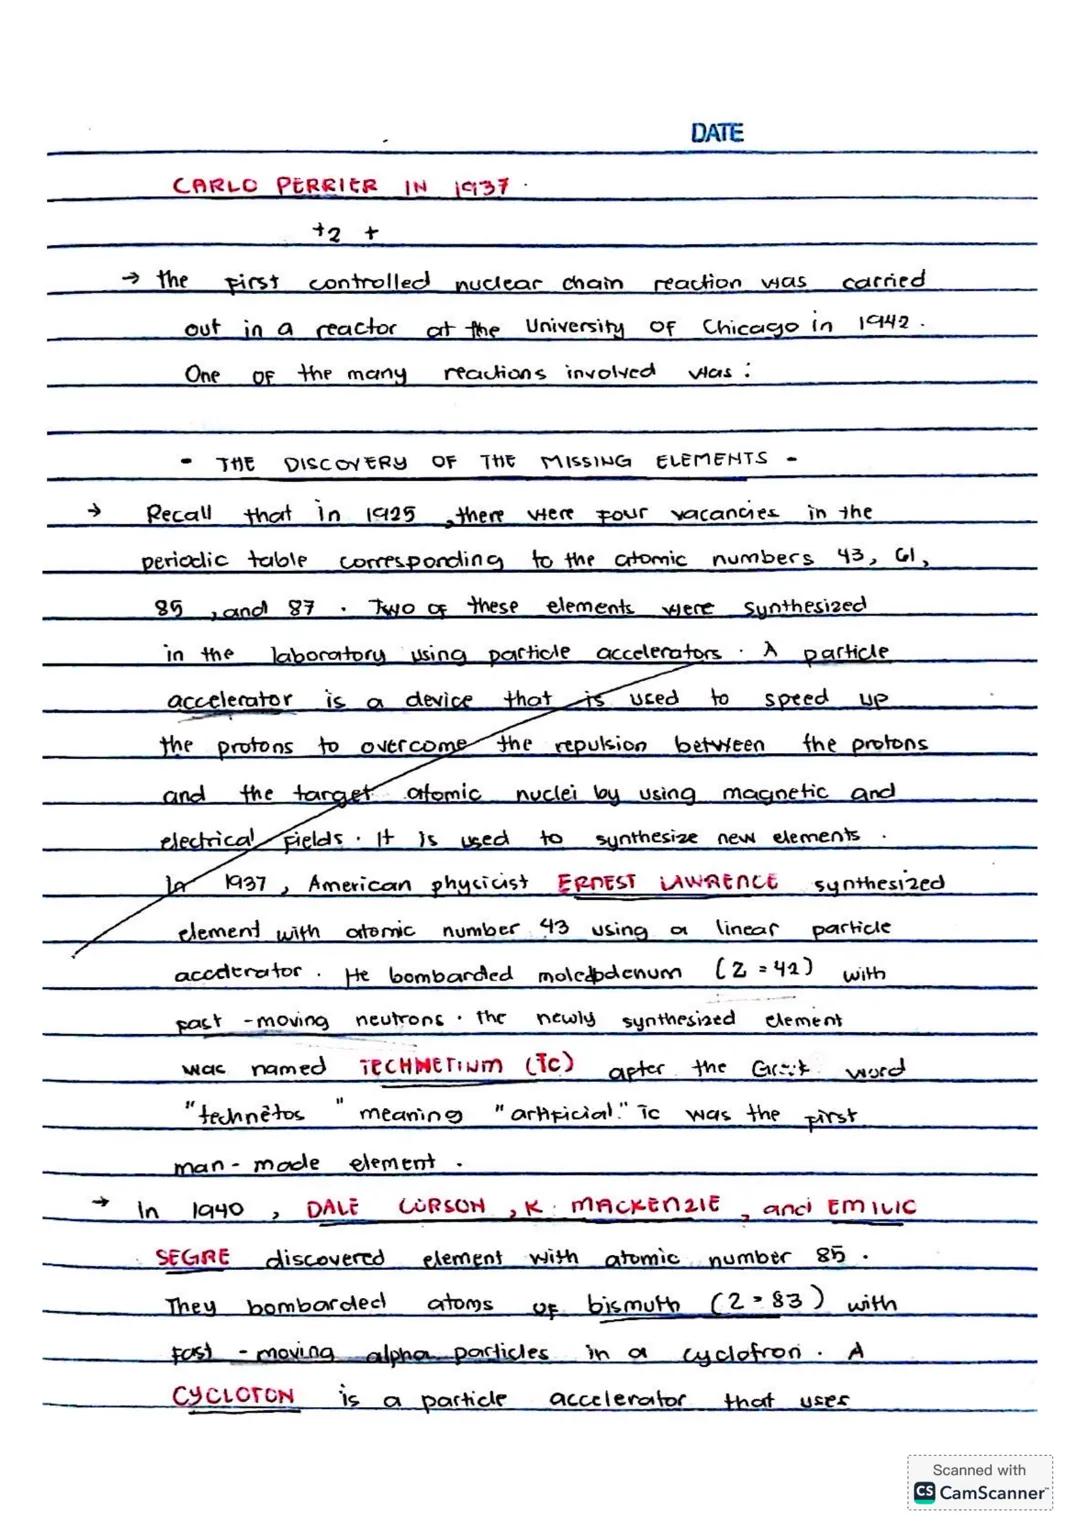 DATE
CARLO PERRIER IN 1937.
+2 +
→ the first controlled nuclear chain reaction was carried
out in a reactor at the University of Chicago in 1942.
One of the many reactions involved was:
- THE DISCOVERY OF THE MISSING ELEMENTS -
→ Recall that in 1925, there were four vacancies in the
periodic table corresponding to the atomic numbers 43, 61,
85, and 87. Two of these elements were synthesized
in the laboratory using particle accelerators. A particle
accelerator is a device that is used to speed up
the protons to overcome the repulsion between the protons
and the target atomic nuclei by using magnetic and
electrical fields. It is used to synthesize new elements.
In 1937, American physicist ERNEST LAWRENCE synthesized
element with atomic number 43 using a linear particle
accelerator. He bombarded molebdenum (Z = 42) with
fast-moving neutrons. the newly synthesized element
was named TECHNETIUM (Tc) after the Greek word
"technêtos" meaning "artificial." Tc was the first
man-made element.
→ In 1940, DALE CORSON, K. MACKENZIE, and EMILIC
SEGRE discovered element with atomic number 85.
They bombarded atoms of bismuth (Z = 83) with
fast-moving alpha particles in a cyclotron. A
CYCLOTON is a particle accelerator that uses
Scanned with
CS CamScanner